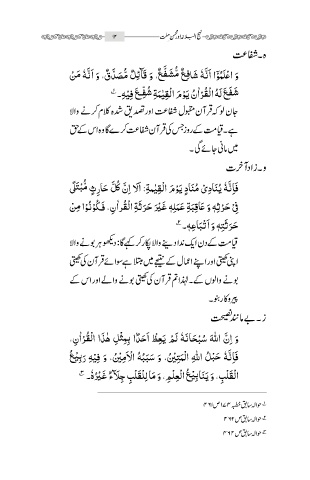 نہج البلاغہ اور محسن ملت
۱۴
ہ۔ شفاعت
وَ اعْلَمُوْٓا اَنَّهٗ شَافِعٌ مُّشَفَّعٌ، وَ قَآئِلٌ مُّصَدَّقٌ، وَ اَنَّهٗ مَنْ
شَفَعَ لَهُ الْقُرْاٰنُ يَوْمَ الْقِيٰمَةِ شُفِّعَ فِيْهِ۔
جان لو کہ قرآن مقبول شفاعت اور تصدیق شدہ کلام کرنے والا
ہے۔ قیامت کے روز جس کی قرآن شفاعت کرے گا وہ اس کے حق
میں مانی جائے گی۔
و۔ زادِ آخرت
فَاِنَّهٗ يُنَادِيْ مُنَادٍ يَوْمَ الْقِيٰمَةِ: اَلَا اِنَّ كُلَّ حَارِثٍ مُّبْتَلًى
فِيْ حَرْثِهٖ وَ عَاقِبَةِ عَمَلِهٖ غَيْرَ حَرَثَةِ الْقُرْاٰنِ، فَكُوْنُوْا مِنْ
حَرَثَتِهٖ وَ اَتْبَاعِهٖ۔
قیامت کے دن ایک ندا دینے والا پکار کر کہے گا: دیکھو ہر بونے والا
اپنی کھیتی اور اپنے اعمال کے نتیجے میں مبتلا ہے سوائے قرآن کی کھیتی
بونے والوں کے۔ لہٰذا تم قرآن کی کھیتی بونے والے اور اس کے
پیروکار بنو۔
ز۔ بے مانند نصیحت
وَ اِنَّ اللهَ سُبْحَانَهٗ لَمْ يَعِظْ اَحَدًا بِمِثْلِ هٰذَا الْقُرْاٰنِ،
فَاِنَّهٗ حَبْلُ اللهِ الْمَتِيْنُ، وَ سَبَبُهُ الْاَمِيْنُ، وَ فِيْهِ رَبِيْعُ
الْقَلْبِ، وَ يَنَابِيْعُ الْعِلْمِ، وَ مَا لِلْقَلْبِ جِلَآءٌ غَيْرُهٗ۔
حوالہ سابق خطبہ ۱۷۴ ص ۴۶۱
حوالہ سابق ص ۴۶۲
حوالہ سابق ص ۴۶۴